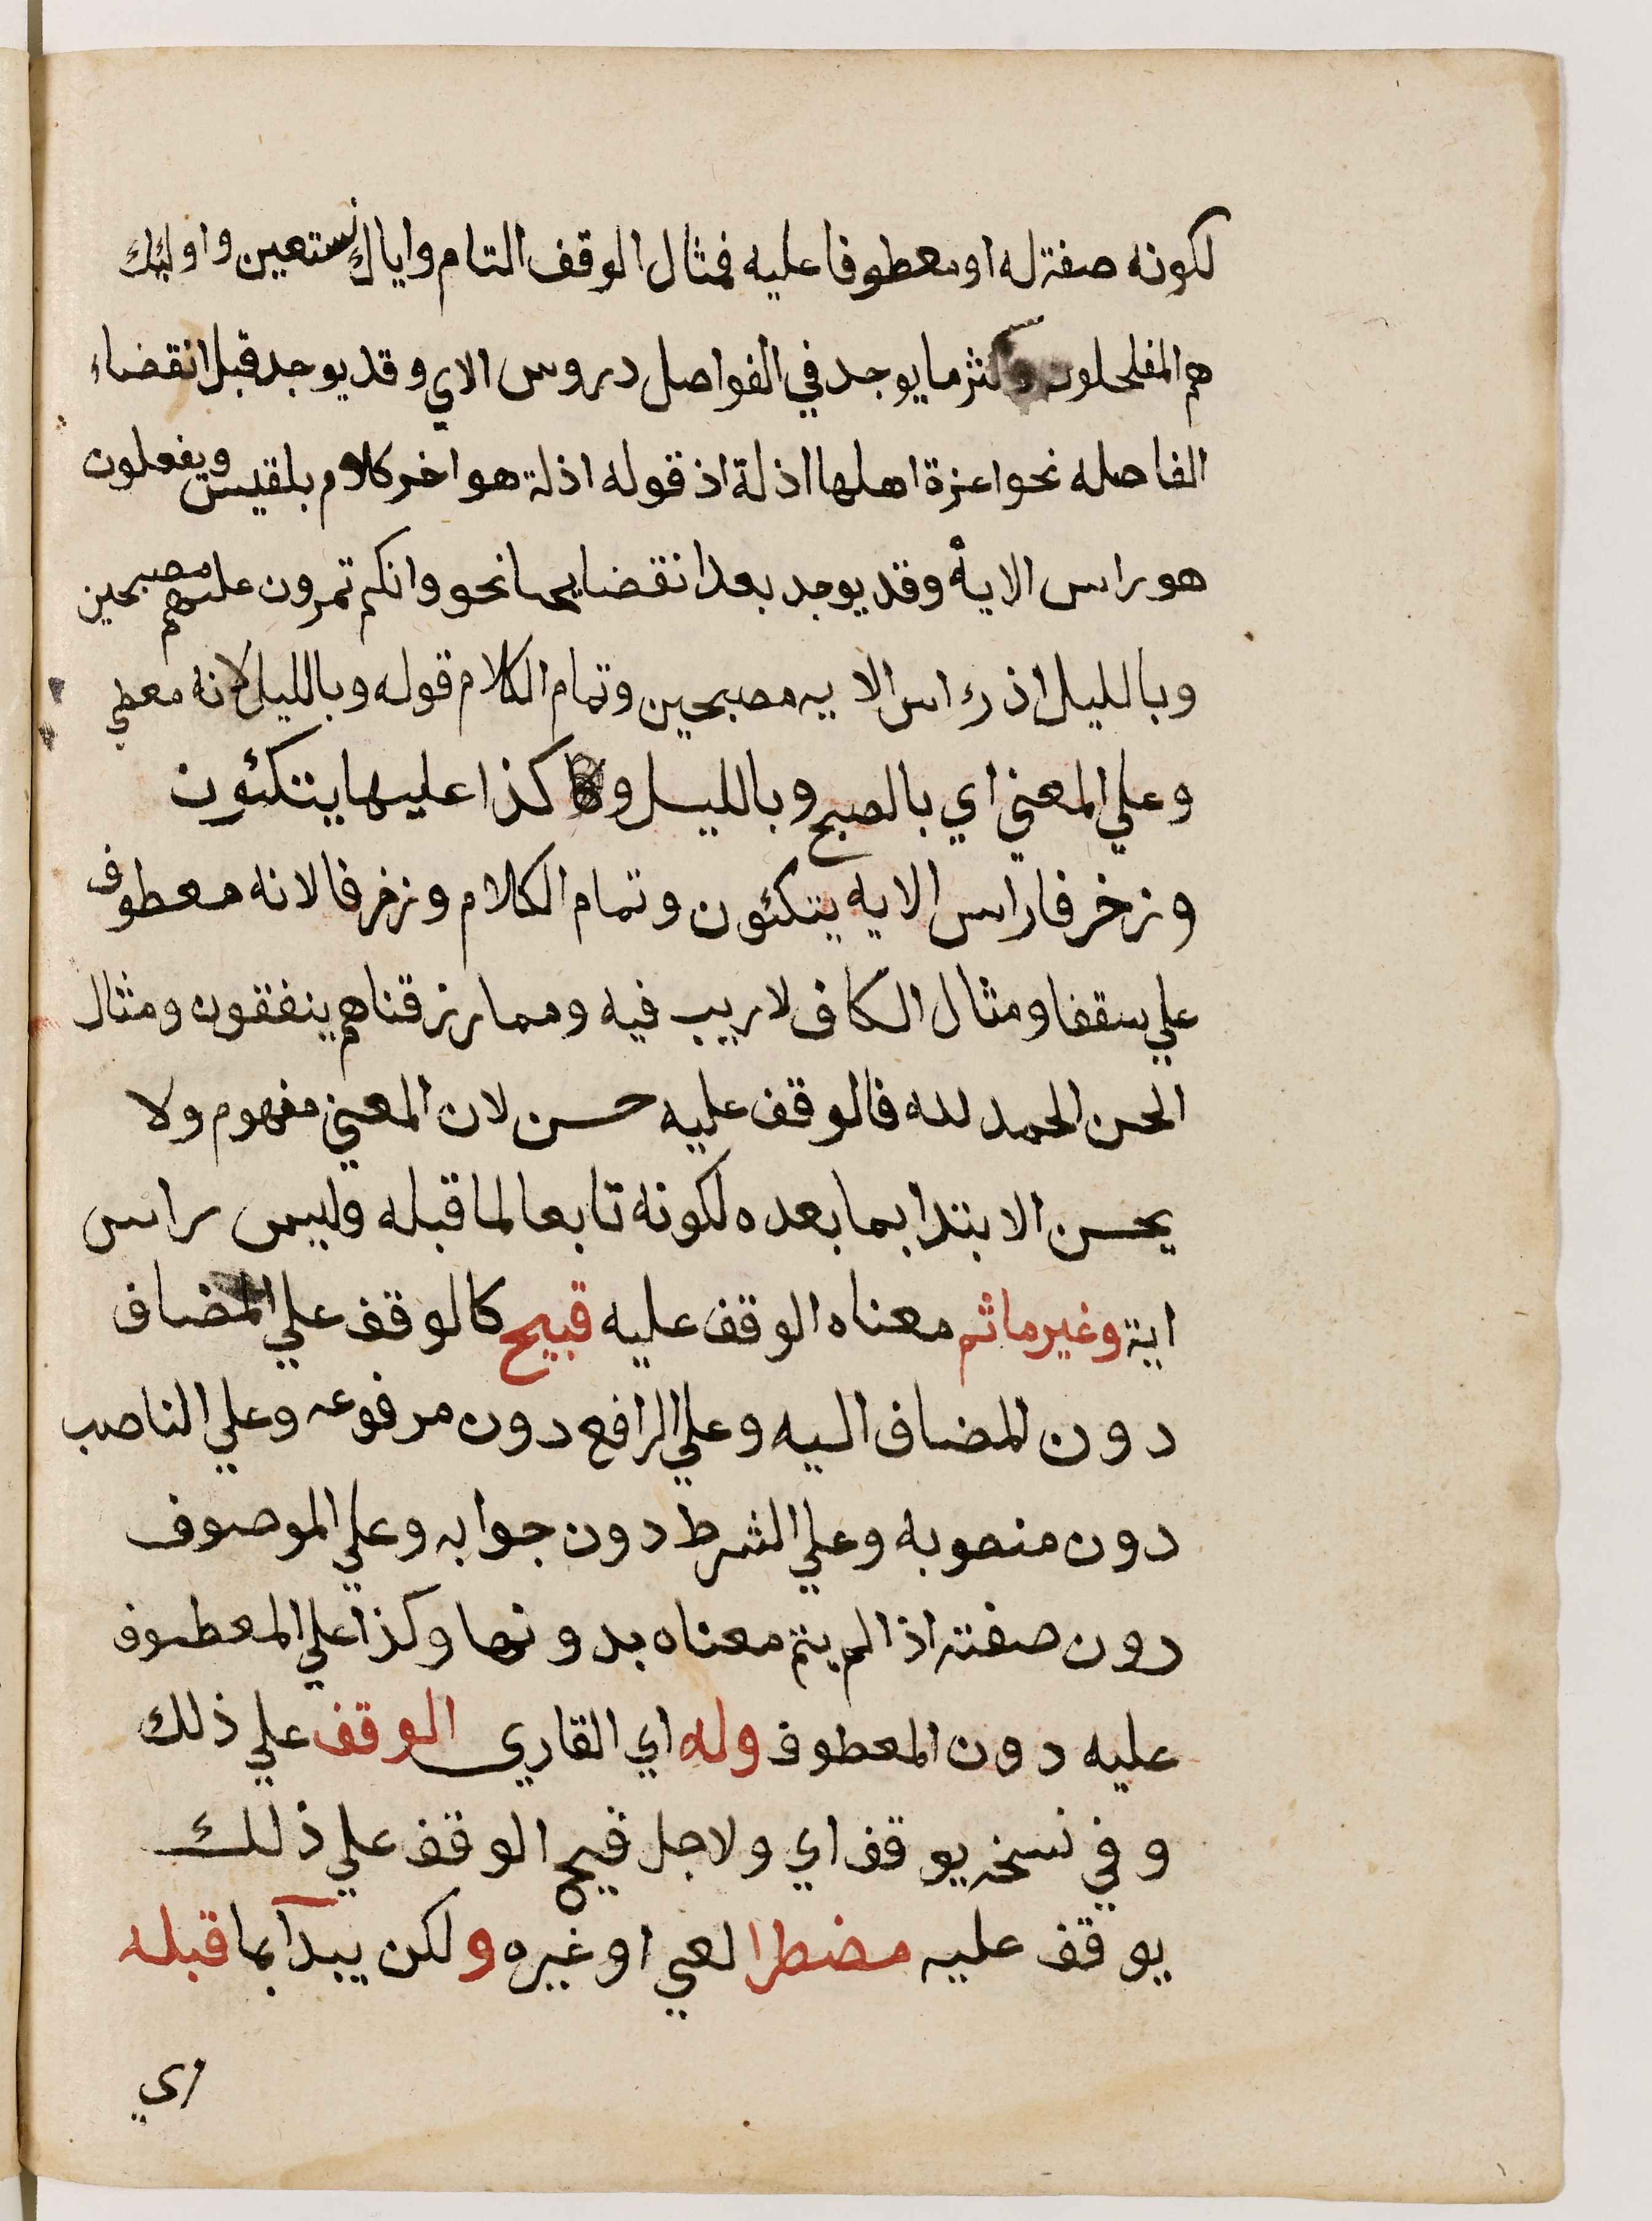 لكونه صفة له او معطوفا عليه فمثال الوقف التام واياك نستعين واولئك
هم المفلحلون واكثر ما يوجد في الفواصل دروس الاي وقد يوجد قبل انقضاء
الفاصله نحو اعزة اهلها اذلة اذ قوله اذلة هو اخر كلام بلقيس ويفعلون
هو راس الاية وقد يوجد بعد انقضايها نحو وانكم تمرون عليهم مصبحين
وبالليل اذ راس الايه مصبحين وتمام الكلام قوله وبالليل لانه معطي
وعلي المعني اي بالصبح وبالليل و كذا عليها يتكئون
وزخرفا راس الايه يتكئون وتمام الكلام وزخرفا لانه معطوف
علي سقفا ومثال الكاف لا ريب فيه ومما رزقناهم ينفقون ومثال
الحسن الحمد لله فالوقف عليه حسن لان المعني مفهوم ولا
يحسن الابتدا بما بعده لكونه تابعا لما قبله وليس راس
اية وغير ما تم معناه الوقف عليه قبيح كالوقف علي المضاف
دون المضاف اليه وعلي الرافع دون مرفوعه وعلي الناصب
دون منصوبه وعلي الشرط دون جوابه وعلي الموصوف
دون صفته اذا لم يتم معناه بدونها وكذا علي المعطوف
عليه دون المعطوف وله اي القاري الوقف علي ذلك
وفي نسخه يوقف اي ولاجل قبح الوقف علي ذلك
يوقف عليه مضطرا لعي او غيره ولكن يبدآ بما قبله